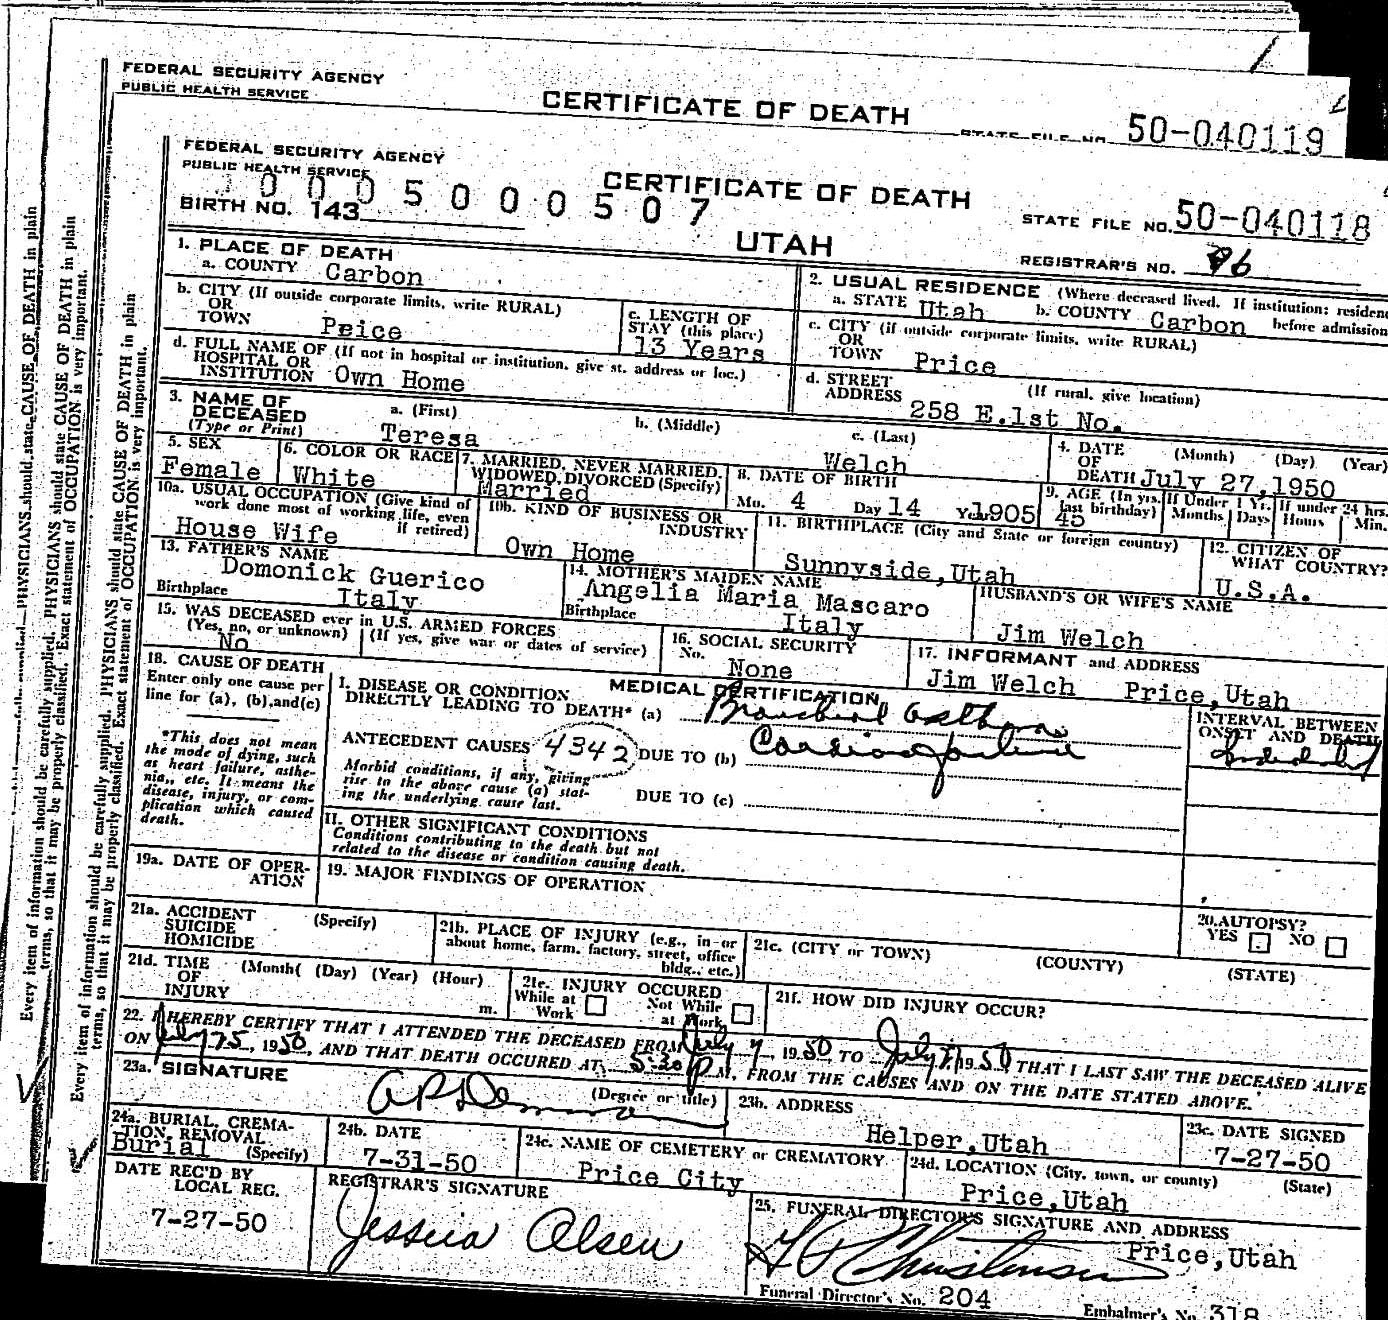 FEDERAL SECURITY AGENCY
PUBLIC HEALTH SERVICE
CERTIFICATE OF DEATH
STATE FILE NO. 50-040119
FEDERAL SECURITY AGENCY
PUBLIC HEALTH SERVICE
0005000507
CERTIFICATE OF DEATH
STATE FILE NO. 50-040118
BIRTH NO. 143
UTAH
REGISTRAR'S NO. 96
1. PLACE OF DEATH
a. COUNTY Carbon
2. USUAL RESIDENCE (Where deceased lived. If institution: residence before admission
a. STATE Utah b. COUNTY Carbon
b. CITY (If outside corporate limits, write RURAL)
OR
TOWN Price
c. LENGTH OF
STAY (this place)
13 Years
c. CITY (if outside corporate limits, write RURAL)
OR
TOWN Price
d. FULL NAME OF (If not in hospital or institution, give st. address or loc.)
HOSPITAL OR
INSTITUTION Own Home
d. STREET (If rural, give location)
ADDRESS 258 E.1st No.
3. NAME OF
DECEASED
(Type or Print)
a. (First) Teresa
b. (Middle)
c. (Last) Welch
4. DATE (Month) (Day) (Year)
OF
DEATH July 27,1950
5. SEX
Female
6. COLOR OR RACE
White
7. MARRIED, NEVER MARRIED,
WIDOWED, DIVORCED (Specify)
Married
8. DATE OF BIRTH
Mo. 4 Day 14 Year 1905
9. AGE (In yrs. last birthday) 45
If Under 1 Yr. Months Days
If under 24 hrs. Hours Min.
10a. USUAL OCCUPATION (Give kind of
work done most of working life, even
if retired)
House Wife
10b. KIND OF BUSINESS OR
INDUSTRY
Own Home
11. BIRTHPLACE (City and State or foreign country)
Sunnyside,Utah
12. CITIZEN OF
WHAT COUNTRY?
U.S.A.
13. FATHER'S NAME
Domonick Guerico
Birthplace Italy
14. MOTHER'S MAIDEN NAME
Angelia Maria Mascaro
Birthplace Italy
HUSBAND'S OR WIFE'S NAME
Jim Welch
15. WAS DECEASED ever in U.S. ARMED FORCES
(Yes, no, or unknown) (If yes, give war or dates of service)
No
16. SOCIAL SECURITY
No. None
17. INFORMANT and ADDRESS
Jim Welch Price,Utah
18. CAUSE OF DEATH
Enter only one cause per
line for (a), (b),and(c)
*This does not mean
the mode of dying, such
as heart failure, asthe-
nia,, etc. It means the
disease, injury, or com-
plication which caused
death.
MEDICAL CERTIFICATION
I. DISEASE OR CONDITION
DIRECTLY LEADING TO DEATH* (a) Bronchial Asthma
INTERVAL BETWEEN
ONSET AND DEATH
ANTECEDENT CAUSES 4342 DUE TO (b)
Morbid conditions, if any, giving
rise to the above cause (a) stat-
ing the underlying cause last.
DUE TO (c)
II. OTHER SIGNIFICANT CONDITIONS
Conditions contributing to the death but not
related to the disease or condition causing death.
19a. DATE OF OPER-
ATION
19. MAJOR FINDINGS OF OPERATION
20. AUTOPSY?
YES NO
21a. ACCIDENT (Specify)
SUICIDE
HOMICIDE
21b. PLACE OF INJURY (e.g., in or
about home, farm, factory, street, office
bldg., etc.)
21c. (CITY or TOWN) (COUNTY) (STATE)
21d. TIME (Month( (Day) (Year) (Hour)
OF
INJURY m.
21e. INJURY OCCURED
While at Work Not While at Work
21f. HOW DID INJURY OCCUR?
22. I HEREBY CERTIFY THAT I ATTENDED THE DECEASED FROM July 7, 1950 TO July 1950 THAT I LAST SAW THE DECEASED ALIVE
ON July 25, 1950, AND THAT DEATH OCCURED AT 5:30 P.M. FROM THE CAUSES AND ON THE DATE STATED ABOVE.
23a. SIGNATURE (Degree or title)
23b. ADDRESS
Helper,Utah
23c. DATE SIGNED
7-27-50
24a. BURIAL, CREMA-
TION, REMOVAL
Burial (Specify)
24b. DATE
7-31-50
24c. NAME OF CEMETERY or CREMATORY
Price City
24d. LOCATION (City, town, or county) (State)
Price,Utah
DATE REC'D BY
LOCAL REG.
7-27-50
REGISTRAR'S SIGNATURE
Jessica Olsen
25. FUNERAL DIRECTOR'S SIGNATURE AND ADDRESS
Christensen
Price,Utah
Funeral Director's No. 204
Embalmer's No. 318
Every item of information should be carefully supplied. PHYSICIANS should state CAUSE OF DEATH in plain
terms, so that it may be properly classified. Exact statement of OCCUPATION is very important.
Every item of information should be carefully supplied. PHYSICIANS should state CAUSE OF DEATH in plain
terms, so that it may be properly classified. Exact statement of OCCUPATION is very important.